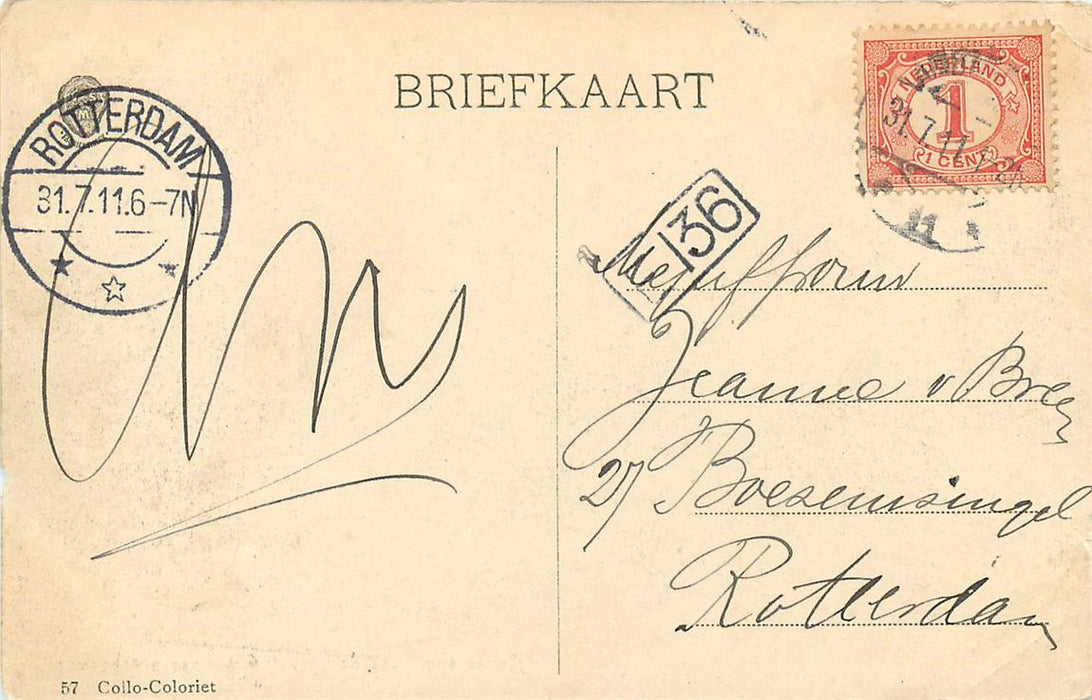 BRIEFKAART
ROTTERDAM
31.7.11.6-7N
NEDERLAND
1
1 CENT
31.7.11
36
Mejuffrouw
Jeanne v Breen
27 Boezemsingel
Rotterdam
57 Collo-Coloriet